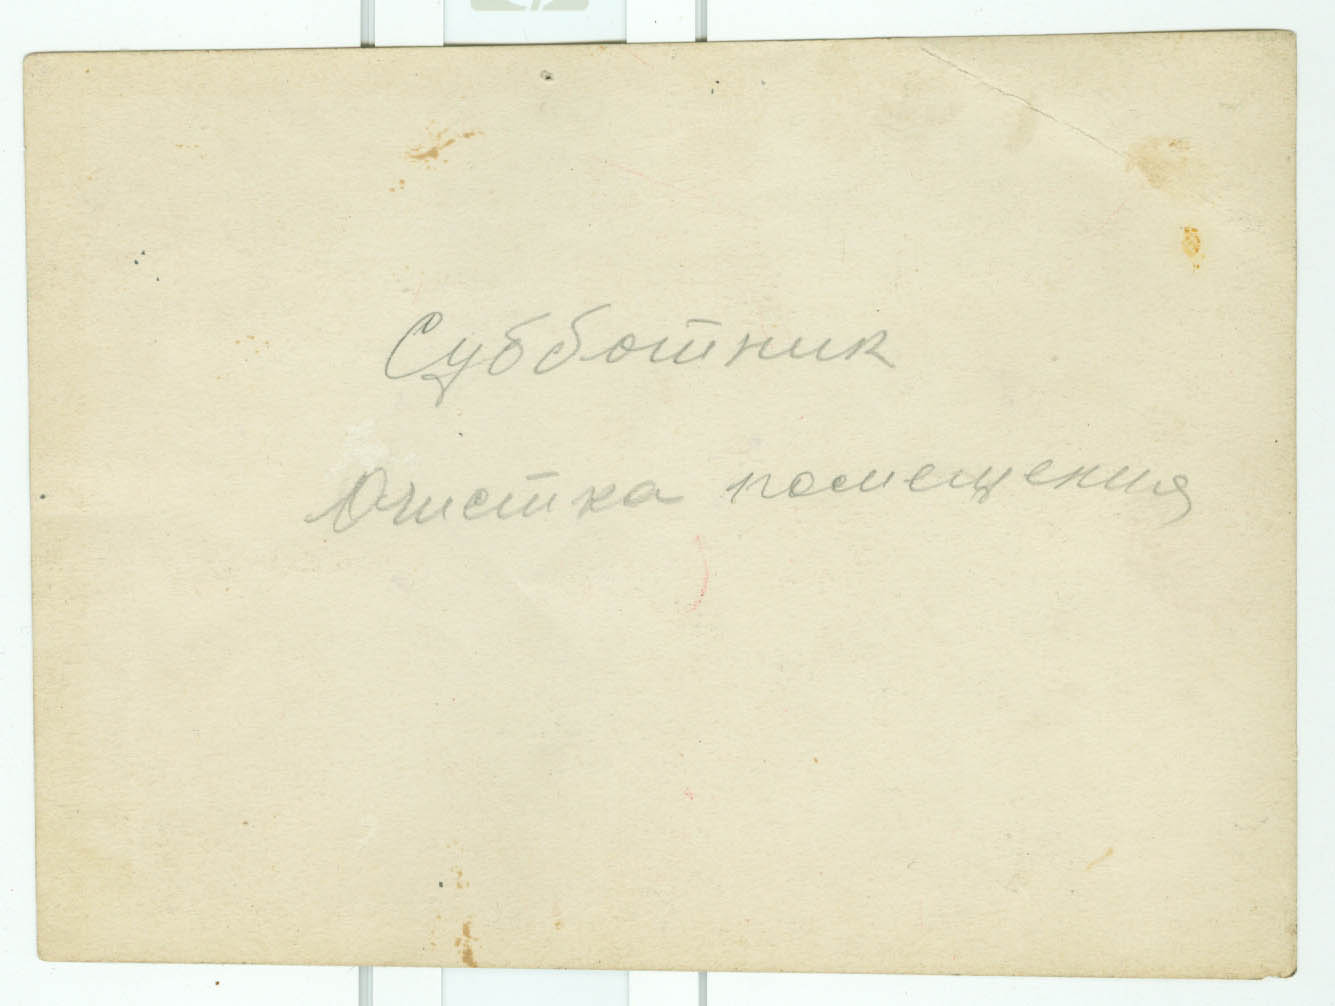 Субботник
Очистка помещения